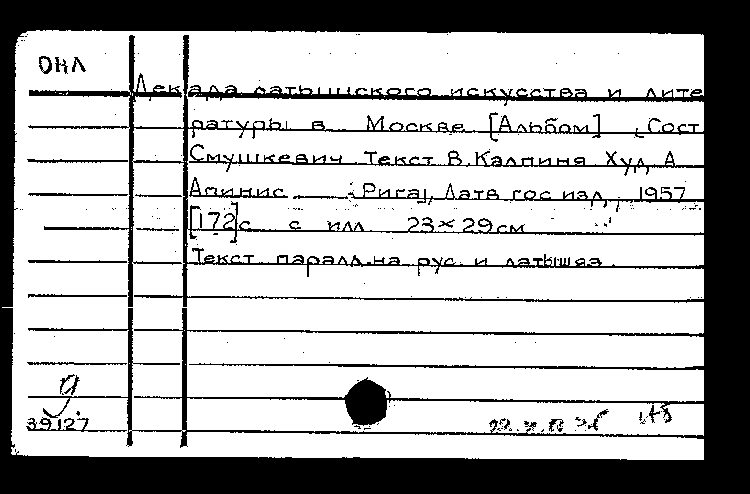 ОНЛ
Декада латышского искусства и лите
ратуры в Москве [Альбом] Сост
Смушкевич Текст В. Калпиня Худ А
Апинис [Рига], Латв гос изд, 1957
[172]с с илл 23×29см
Текст паралл. на рус. и латыш яз.
39127